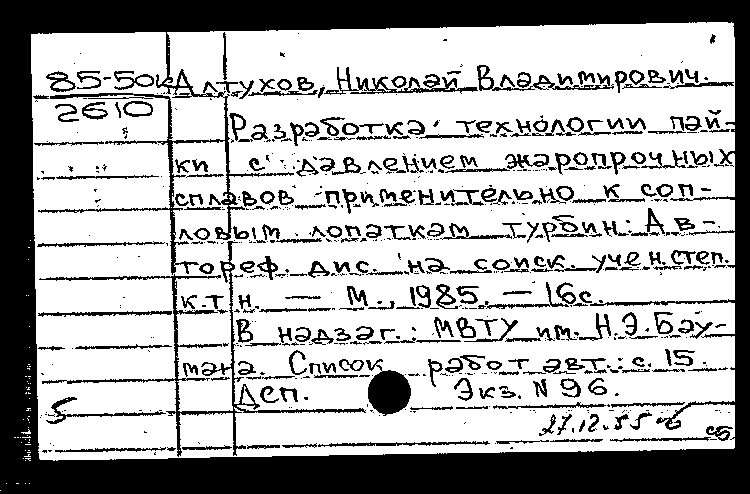 85-50к Алтухов, Николай Владимирович.
2610
Разработка технологии пай-
ки с давлением жаропрочных
сплавов применительно к соп-
ловым лопаткам турбин: Ав-
тореф. дис. на соиск. учен. степ.
к.т.н. — М., 1985. — 16с.
В надзаг.: МВТУ им. Н.Э. Бау-
мана. Список работ авт.: с. 15.
Деп. Экз. N 96.
5
27.12.85